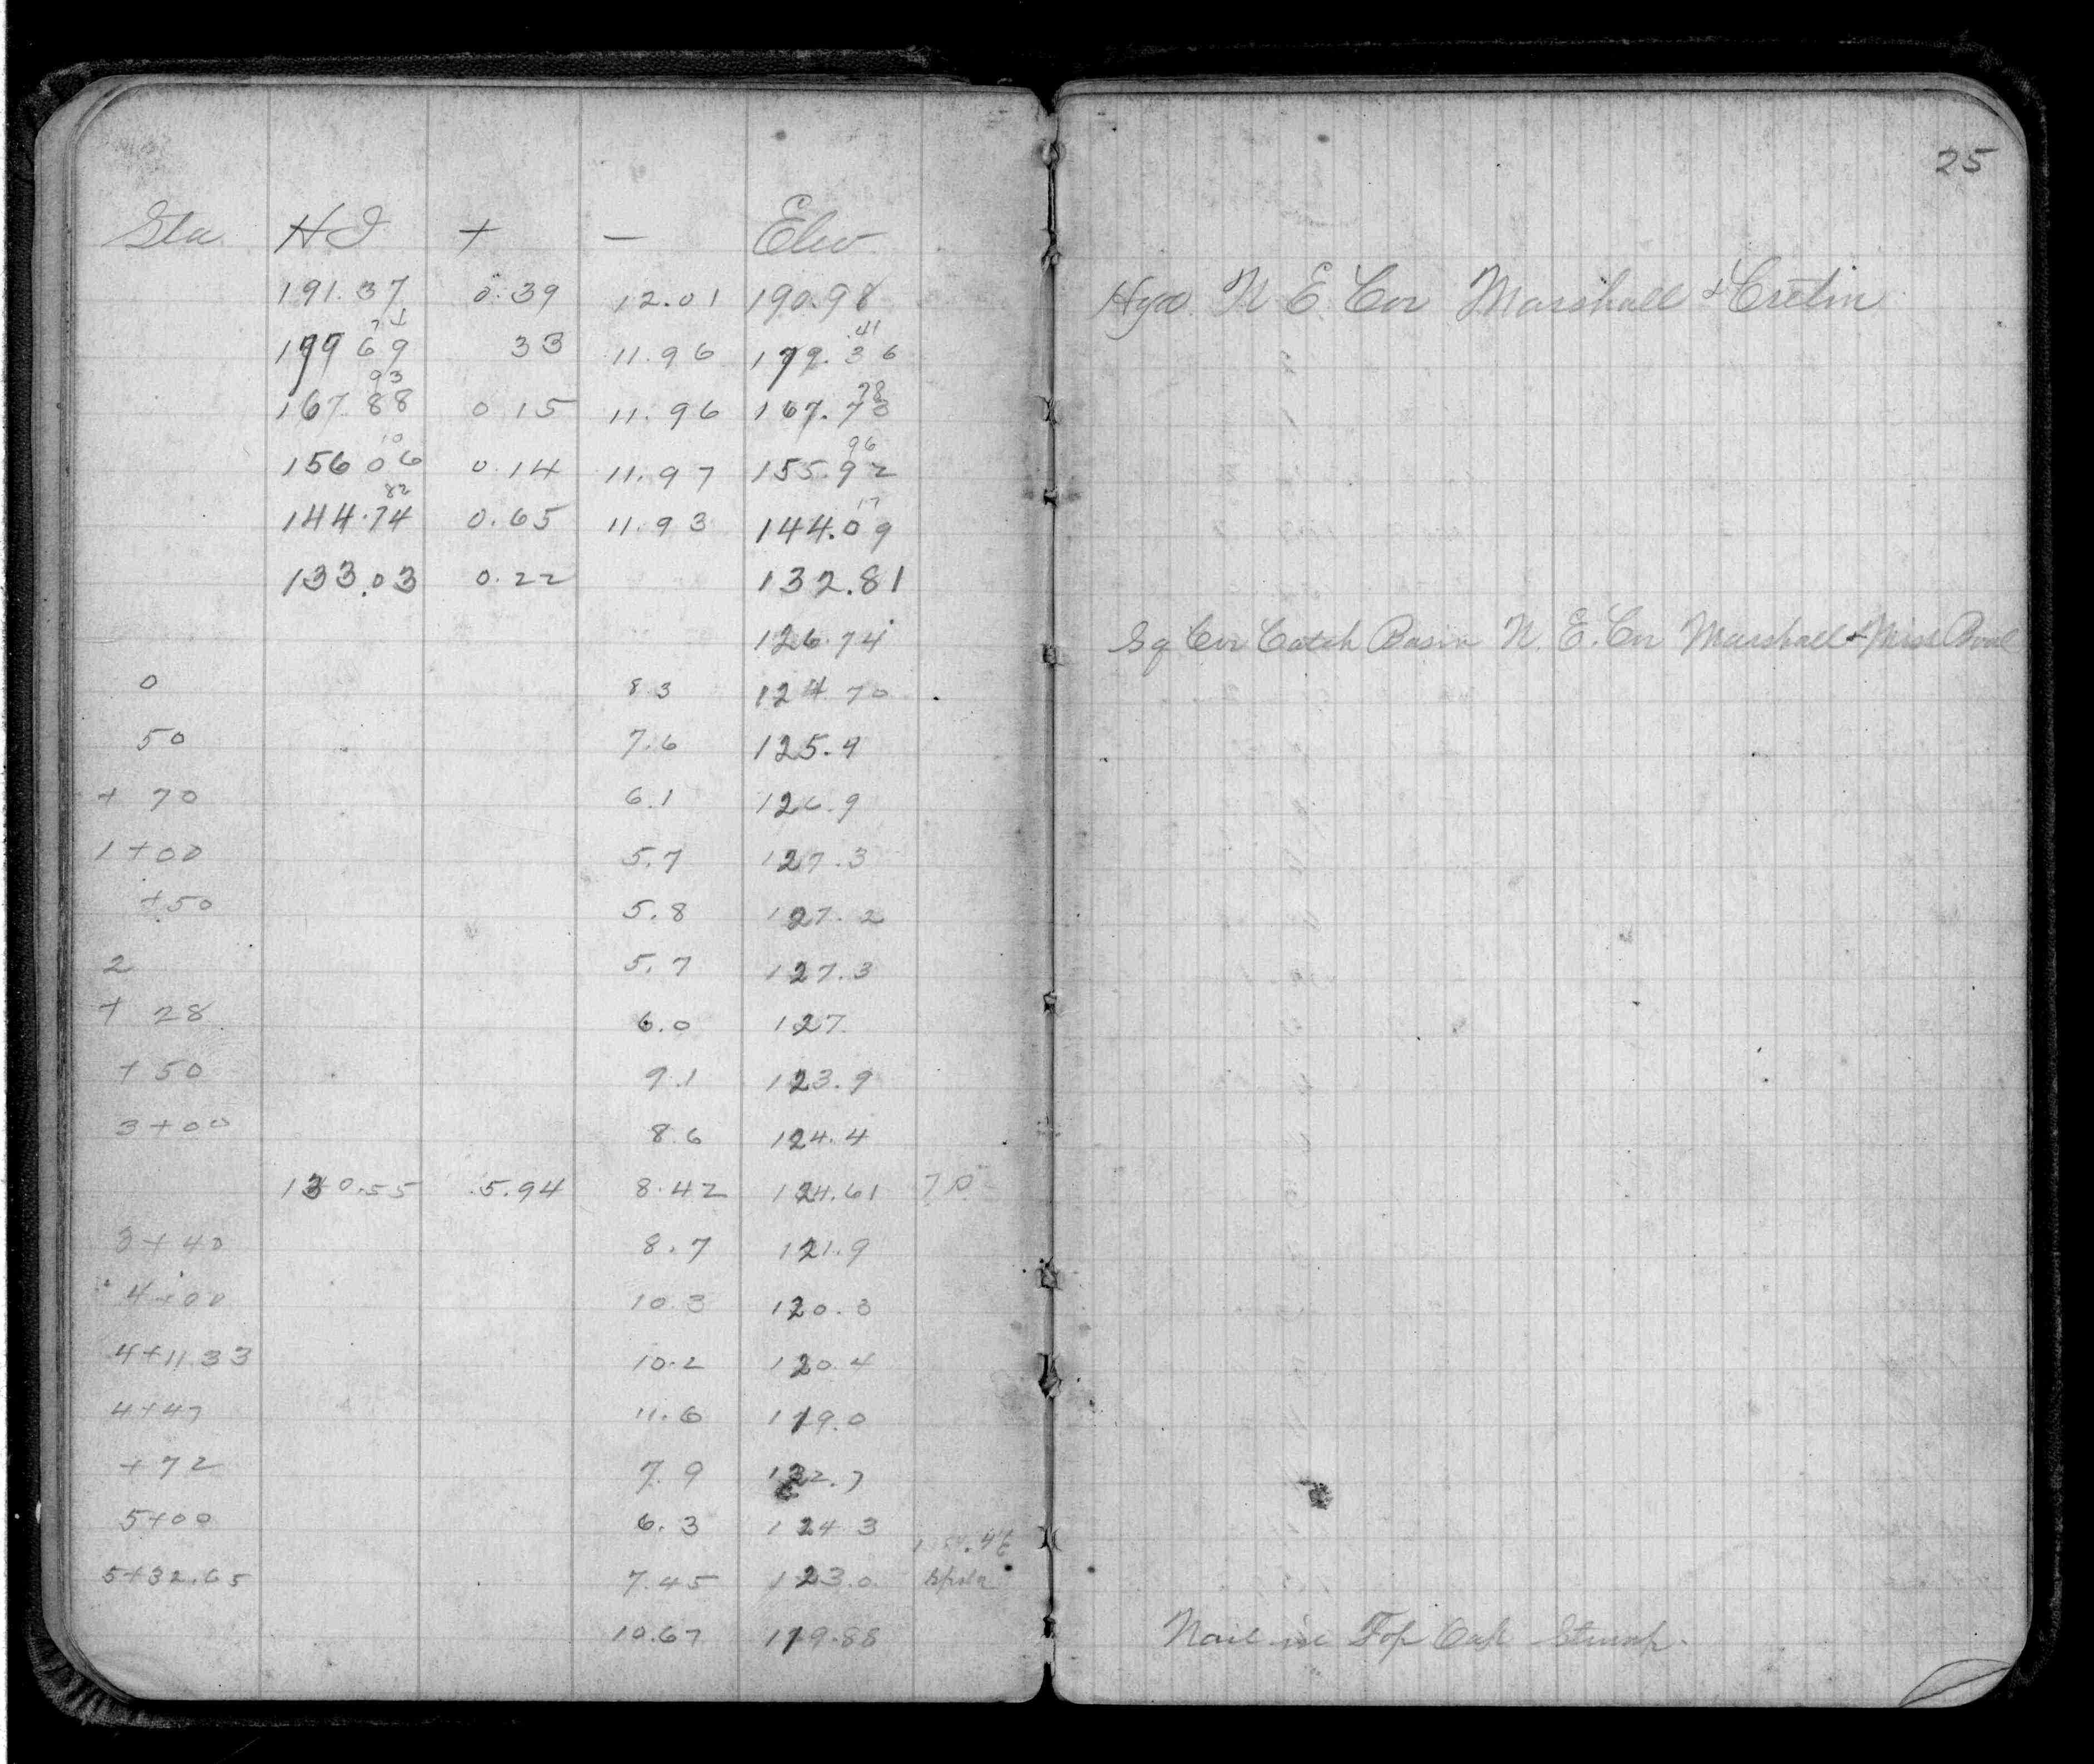 25
Sta HI + - Elev
191.37 0.39 12.01 190.98 Hyd. N. E. Cor Marshall & Cretin
74 41
179 69 33 11.96 179.36
93 28
167.88 0 15 11.96 167.73
10 96
156 06 0.14 11.97 155.92
82 17
144.74 0.65 11.93 144.09
133.03 0.22 132.81
126.74 Sq Cor Catch Basin N. E. Cor Marshall & Miss Boul
0 8.3 124 70
50 7.6 125.4
+ 70 6.1 126.9
1+00 5.7 127.3
+50 5.8 127.2
2 5.7 127.3
+ 28 6.0 127
+ 50 9.1 123.9
3+00 8.6 124.4
130.55 5.94 8.42 124.61 70
3+40 8.7 121.9
4+00 10.3 120.3
4+11.33 10.2 120.4
4+47 11.6 119.0
+72 7.9 122.7
5+00 6.3 124.3
5+32.65 7.45 123.0
10.67 119.88 Nail in Top Oak Stump.